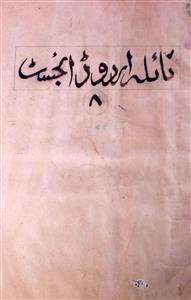 نائلہ اردو ڈائجسٹ
۸